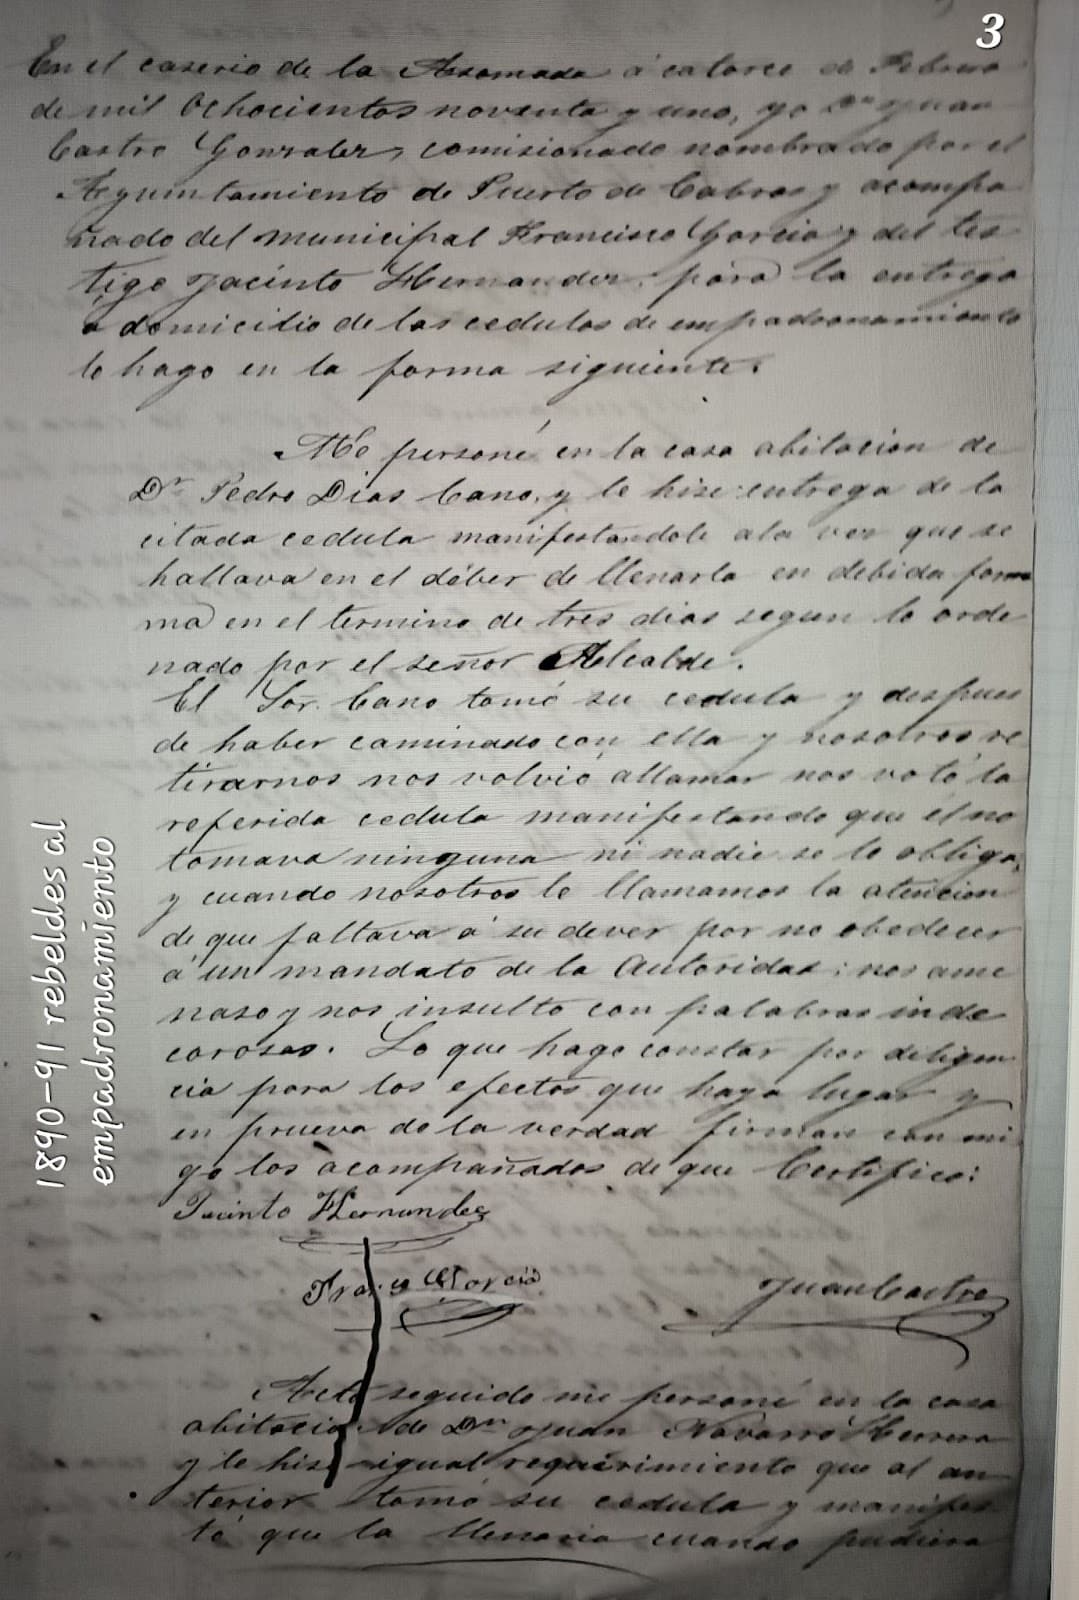 3
En el caserio de la Assomada á catorce de Febrero
de mil Ochocientos noventa y uno, yo Dn Juan
Castro Gonzalez, comisionado nombrado por el
Ayuntamiento de Puerto de Cabras y acompa
ñado del municipal Francisco Garcia y del tes
tigo Jacinto Hernandez, para la entrega
a domicilio de las cedulas de empadronamiento
lo hago en la forma siguiente.
Me personé en la casa abitacion de
Dn Pedro Dias Cano, y le hise entrega de la
citada cedula manifestandole ala vez que se
hallava en el déber de llenarla en debida for
ma en el termino de tres dias segun lo orde
nado por el señor Alcalde.
El Sor. Cano tomó su cedula y despues
de haber caminado con ella y nosotros re
tirarnos nos volvió allamar nos votó la
referida cedula manifestando que él no
tomava ninguna ni nadie se lo obliga,
y cuando nosotros le llamamos la atencion
de que faltava á su dever por no obedecer
á un mandato de la Autoridad; nos ame
naso y nos insulto con palabras inde
corosas. Lo que hago constar por diligen
cia para los efectos que haya lugar y
en prueva de la verdad firman con mi
go los acompañados de que Certifico:
Jacinto Hernandez
Franco Garcia
Juan Castro
Acto seguido me personé en la casa
abitacion de Dn Juan Navarro Herrera
y le hise igual requirimiento que al an
terior tomó su cedula y manifes
tó que la llenaria cuando pudiera
1890-91 rebeldes al
empadronamiento